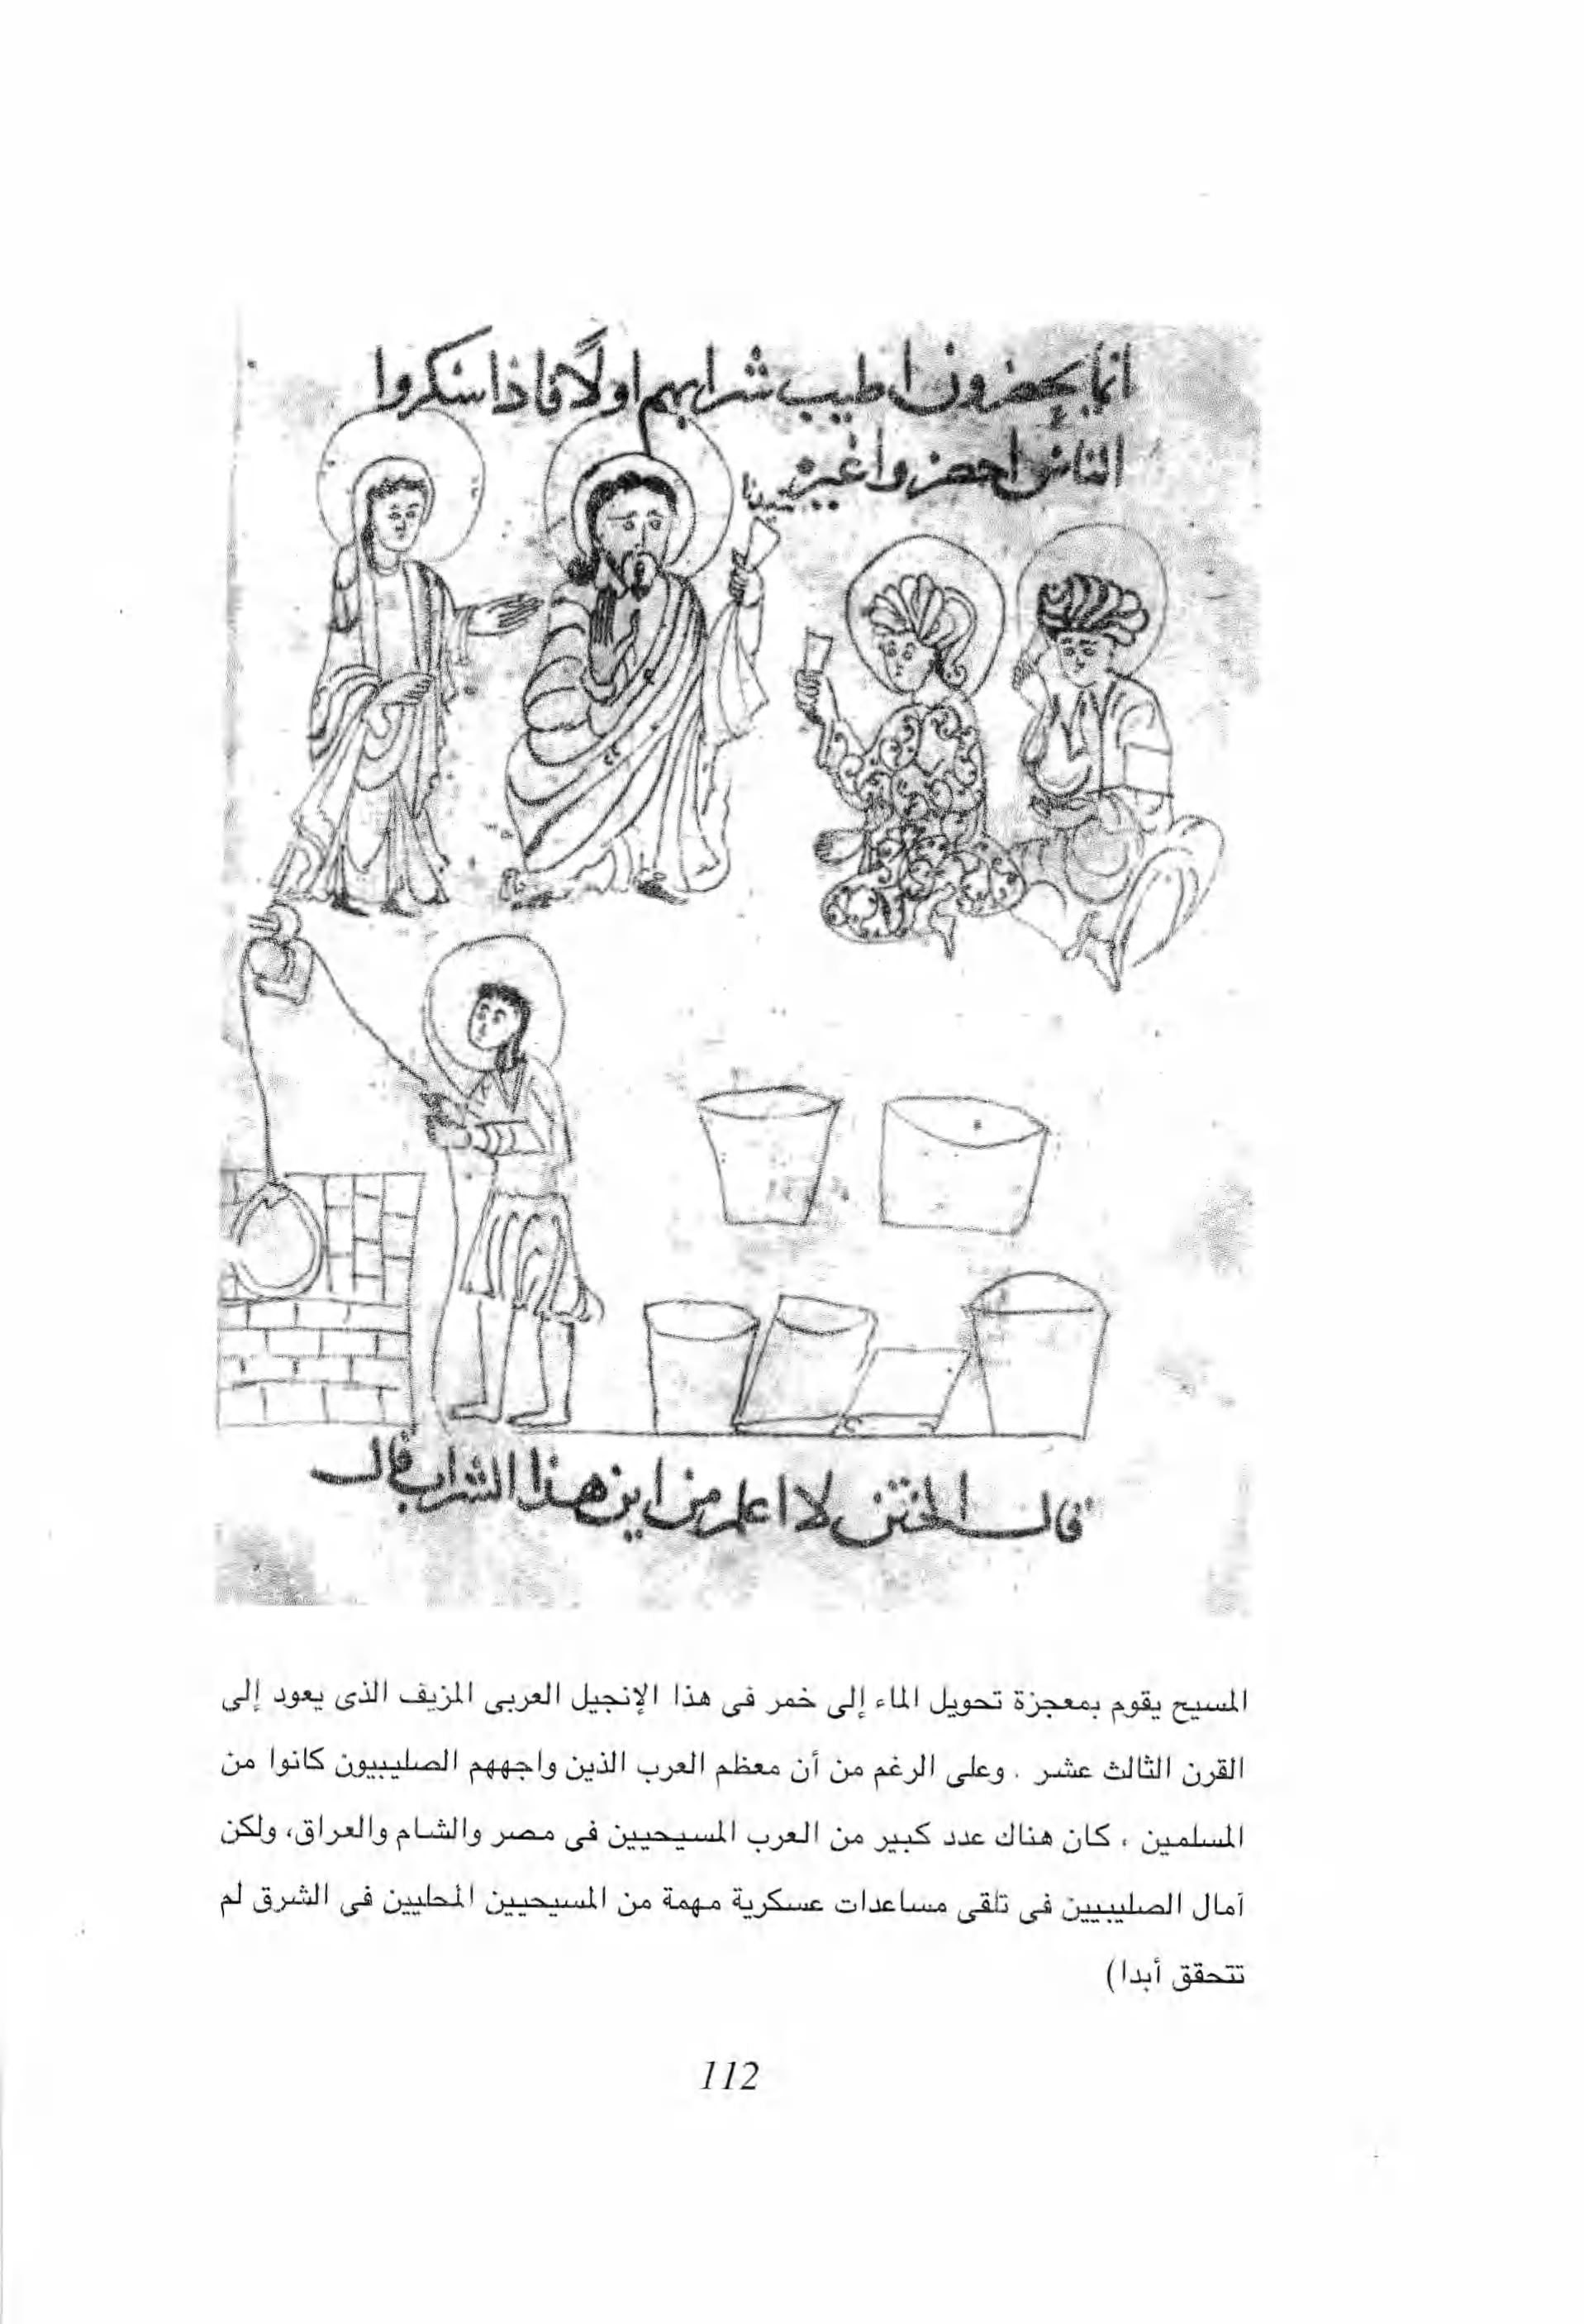 انما يحضرون اطيب شرابهم اولًا فاذا سكروا
الناس احضروا غيره
سيدنا
قال الختن لا اعلم من اين هذا الشراب قال
المسيح يقوم بمعجزة تحويل الماء إلى خمر فى هذا الإنجيل العربى المزيف الذى يعود إلى
القرن الثالث عشر . وعلى الرغم من أن معظم العرب الذين واجههم الصليبيون كانوا من
المسلمين ، كان هناك عدد كبير من العرب المسيحيين فى مصر والشام والعراق، ولكن
آمال الصليبيين فى تلقى مساعدات عسكرية مهمة من المسيحيين المحليين فى الشرق لم
تتحقق أبدا)
112